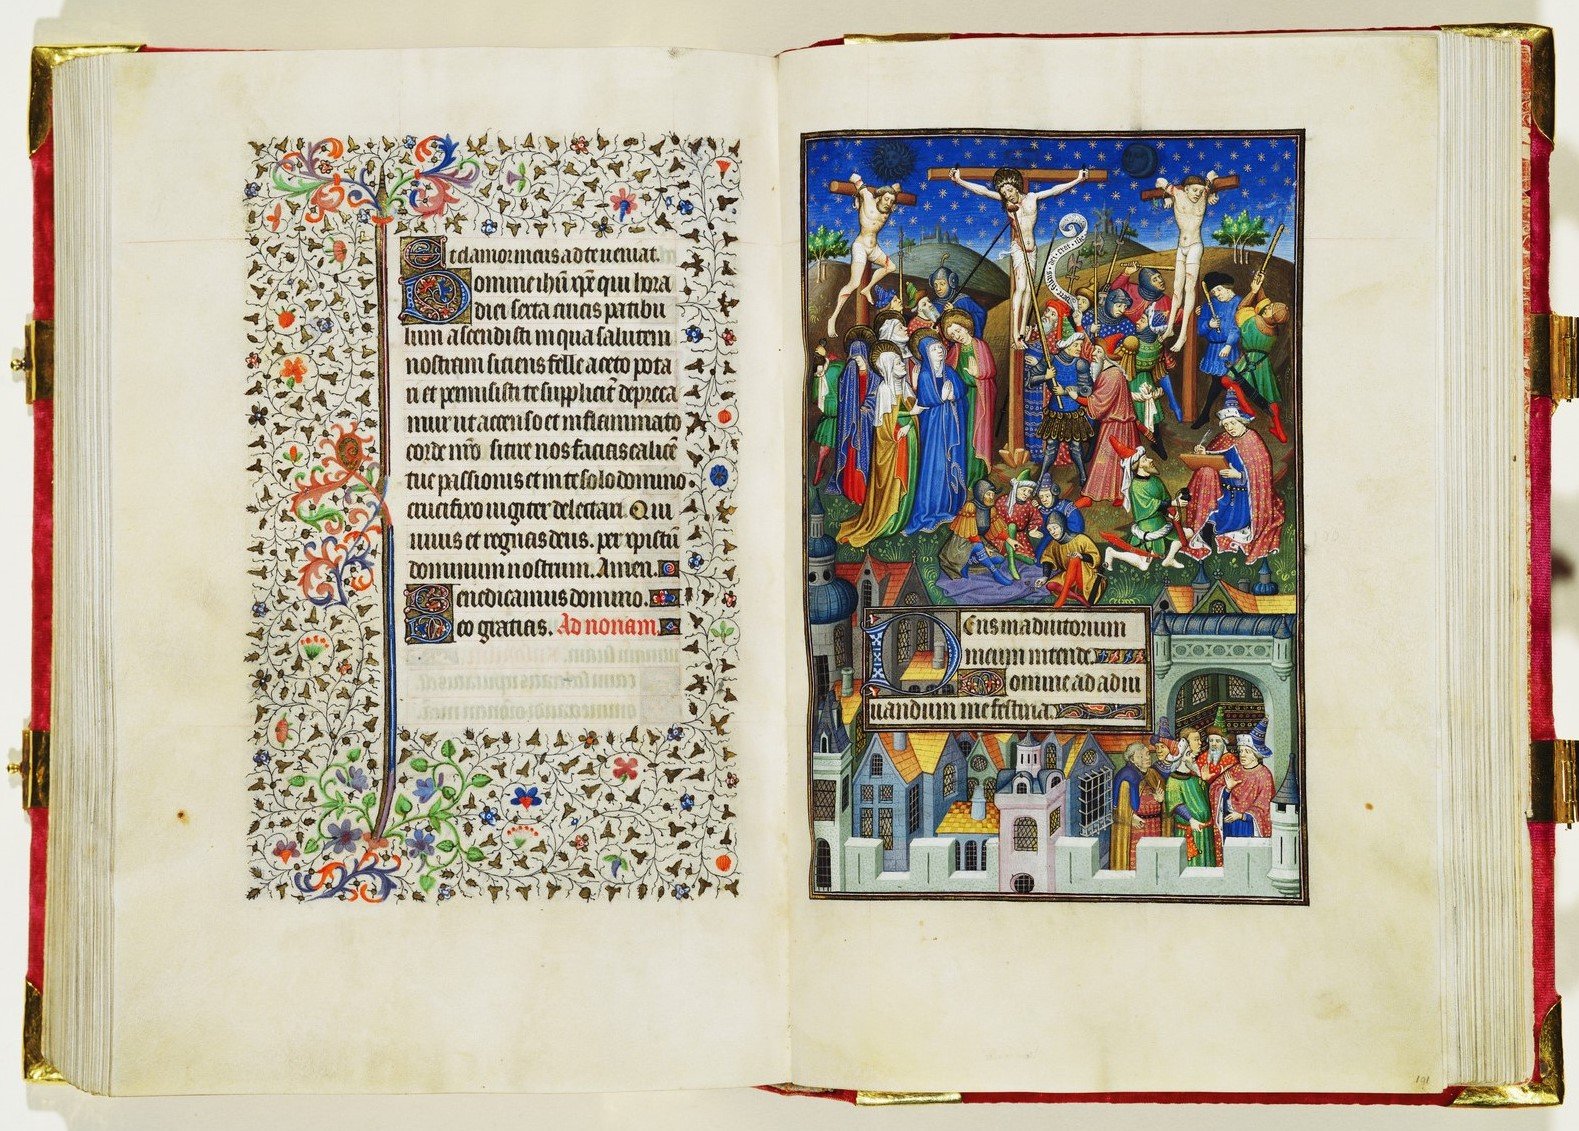 Et clamor meus ad te veniat.
Domine ihū xpē qui hora
diei sexta crucis patibu
lum ascendisti in qua salutem
nostram siciens felle aceto pota
ri et permisisti te supplicit̄ depreca
mur ut accenso et inflammato
corde nr̄o sitire nos facias calicē
tue passionis et in te solo domino
crucifixo iugiter delectari. Qui
vivis et regnas deus. per xpistū
dominum nostrum. Amen.
Benedicamus domino.
Deo gratias. Ad nonam.
Deus in adiutorium
meum intende.
Domine ad adiu
uandum me festina.
191